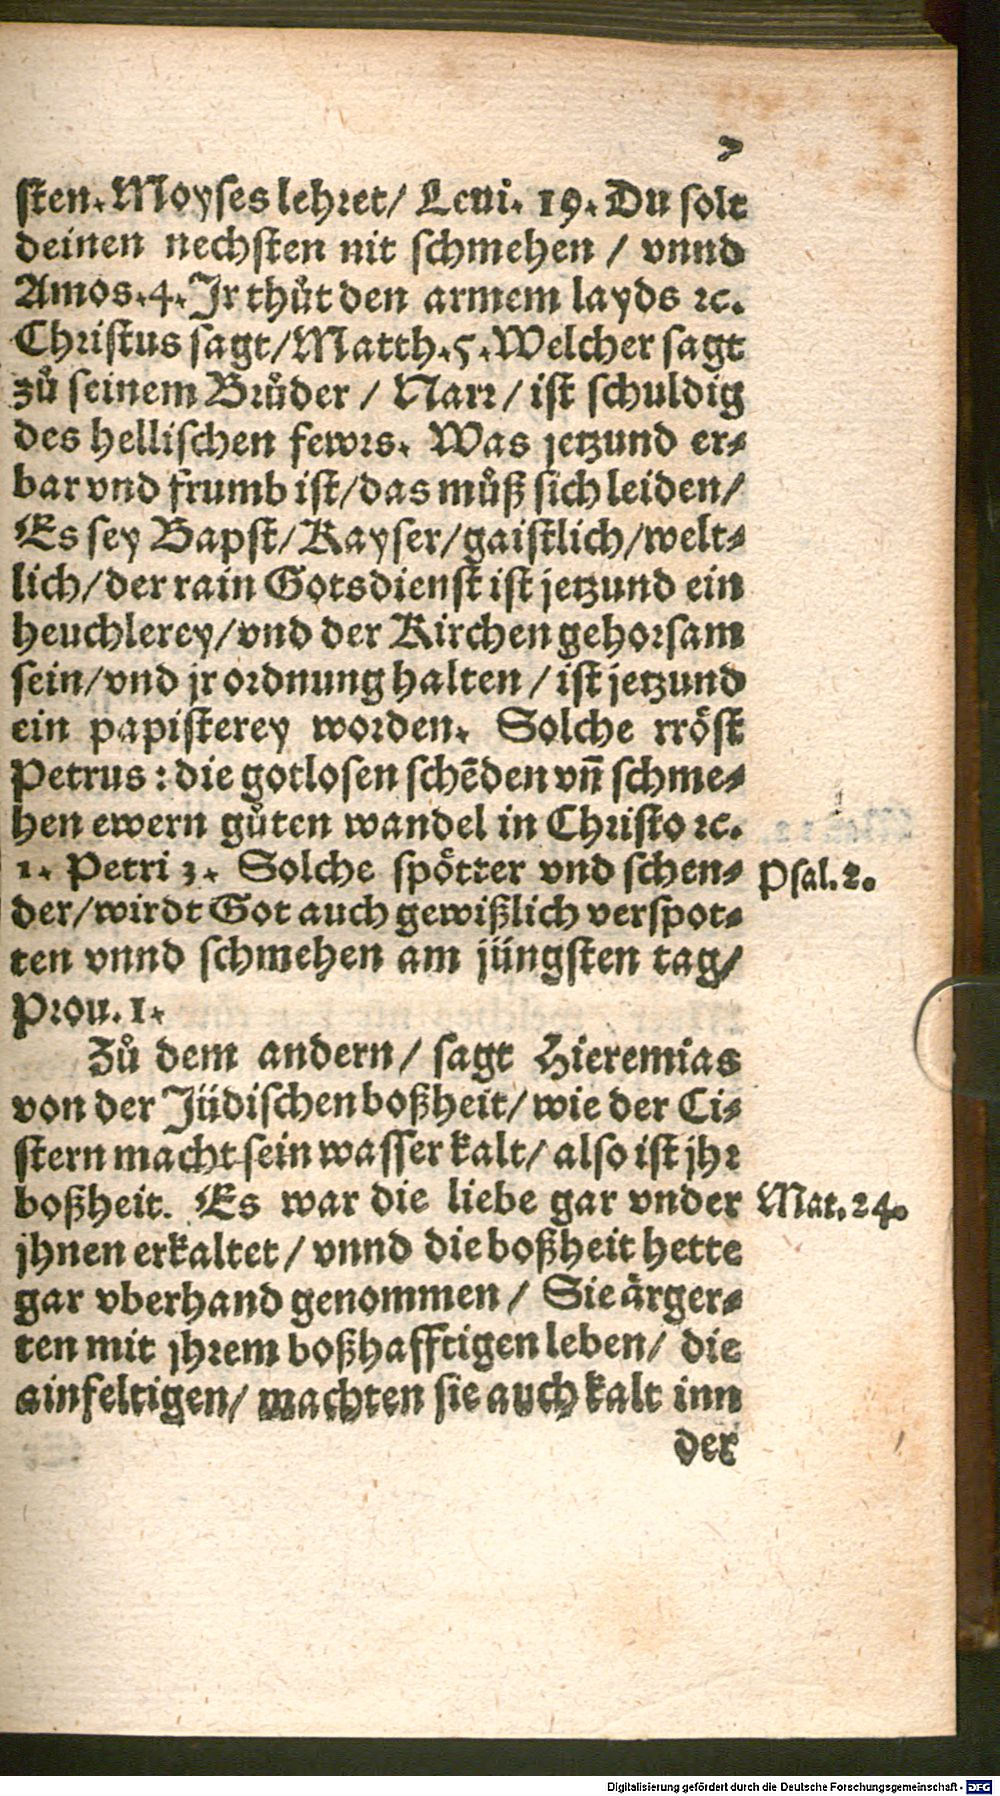 7
sten. Moyses lehret/ Leui. 19. Du solt
deinen nechsten nit schmehen / vnnd
Amos. 4. Jr thůt den armem layds ꝛc.
Christus sagt/ Matth. 5. Welcher sagt
zů seinem Brůder / Narr / ist schuldig
des hellischen fewrs. Was jetzund er⸗
bar vnd frumb ist/ das můß sich leiden/
Es sey Bapst/ Kayser/ gaistlich/ welt⸗
lich/ der rain Gotsdienst ist jetzund ein
heuchlerey/ vnd der Kirchen gehorsam
sein/ vnd jr ordnung halten / ist jetzund
ein papisterey worden. Solche rröst
Petrus : die gotlosen schẽden vñ schme⸗
hen ewern gůten wandel in Christo ꝛc.
1. Petri 3. Solche spötter vnd schen⸗
der/ wirdt Got auch gewißlich verspot⸗
ten vnnd schmehen am jüngsten tag/
Prou. 1.
Psal. 2.
Zů dem andern / sagt Hieremias
von der Jüdischen boßheit/ wie der Ci⸗
stern macht sein wasser kalt/ also ist jhr
boßheit. Es war die liebe gar vnder
jhnen erkaltet / vnnd die boßheit hette
gar vberhand genommen / Sie ärger⸗
ten mit jhrem boßhafftigen leben/ die
ainfeltigen/ machten sie auch kalt inn
der
Mat. 24.
Digitalisierung gefördert durch die Deutsche Forschungsgemeinschaft - DFG